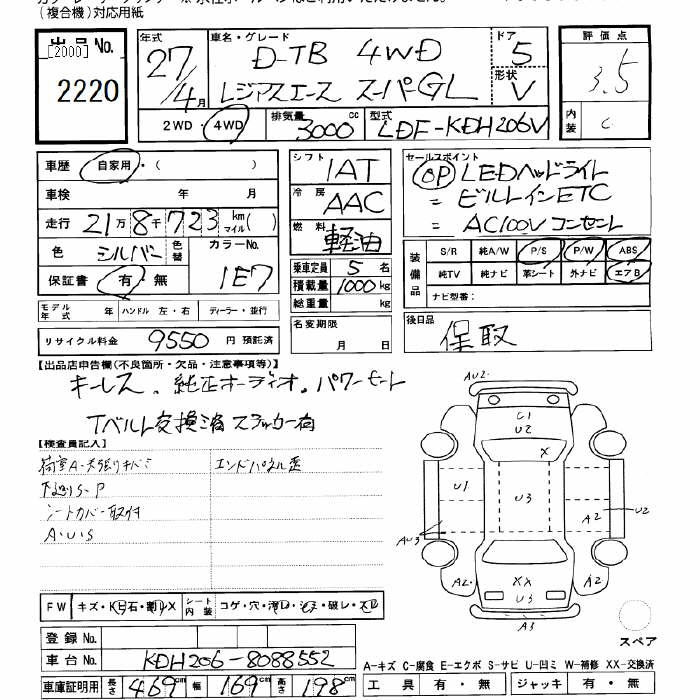 (複合機)対応用紙
出品No.
[2000]
2220
年式 27/4月
車名・グレード D-TB 4WD
レジアスエース スーパーGL
ドア 5
形状 V
評価点 3.5
内装 C
2WD・4WD
排気量 3000cc
型式 LDF-KDH206V
車歴 自家用・( )
車検 年 月
走行 21万8千723 km マイル( )
色 シルバー 色替 カラーNo. 1E7
保証書 有・無
シフト 1AT
冷房 AAC
燃料 軽油
乗車定員 5名
積載量 1000kg
総重量 kg
セールスポイント
OP LEDヘッドライト
= ビルトインETC
= AC100Vコンセント
装備品 S/R 純A/W P/S P/W ABS
純TV 純ナビ 革シート 外ナビ エアB
ナビ型番:
モデル年式 年 ハンドル 左・右 ディーラー・並行
リサイクル料金 9550 円 預託済
名変期限 月 日
後日品 保取
【出品店申告欄(不良箇所・欠品・注意事項等)】
キーレス。純正オーディオ。パワーシート
Tベルト交換済ステッカー有
【検査員記入】
エンドパネル歪
下廻りS-P
シートカバー取付
A・U・S
AU2
C1
U2
X
U1
U3
A2
U2
AU3
A2
XX
U3
A2
A3
スペア
FW キズ・
シート内装 コゲ・穴・
登録No.
車台No. KDH206-8088552
車庫証明用 長さ 469cm 幅 169cm 高さ 198cm
A-キズ C-腐食 E-エクボ S-サビ U-凹ミ W-補修 XX-交換済
工具 有・無 ジャッキ 有・無